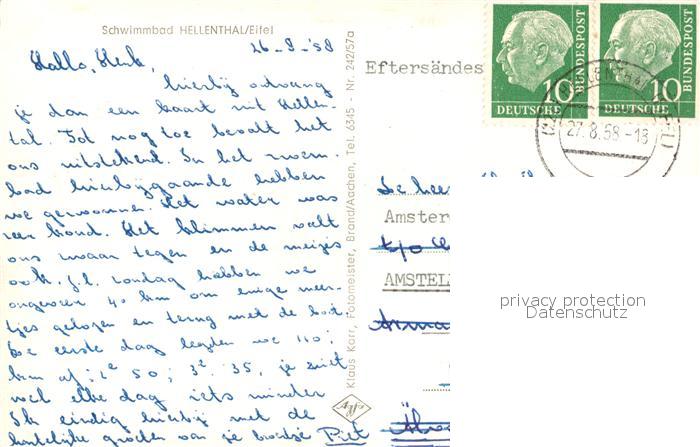 Schwimmbad HELLENTHAL/Eifel
26-8-'58
Hallo, Henk,
hierbij ontvang
je dan een kaart uit Hellen-
tal. Tot nog toe bevalt het
ons uitstekend. In het zwem-
bad hierbijgaande hebben
we gezwommen. Het water was
zeer koud. Het klimmen valt
ons zwaar tegen en de meisjes
ook. j.l. zondag hebben we
ongeveer 40 km om enige meer-
tjes gelopen en terug met de boot.
De eerste dag legden we 110
km af; 2e 50; 3e 35, je ziet
wel elke dag iets minder
Ik eindig hierbij met de
hartelijke groeten van je broertje Piet
Klaus Karr, Fotomeister, Brand/Aachen, Tel. 6345 - Nr. 242/57a
Agfa
Eftersändes
10
DEUTSCHE
BUNDESPOST
10
DEUTSCHE
BUNDESPOST
27.8.58-18
De heer
Amster
AMSTEL
privacy protection
Datenschutz